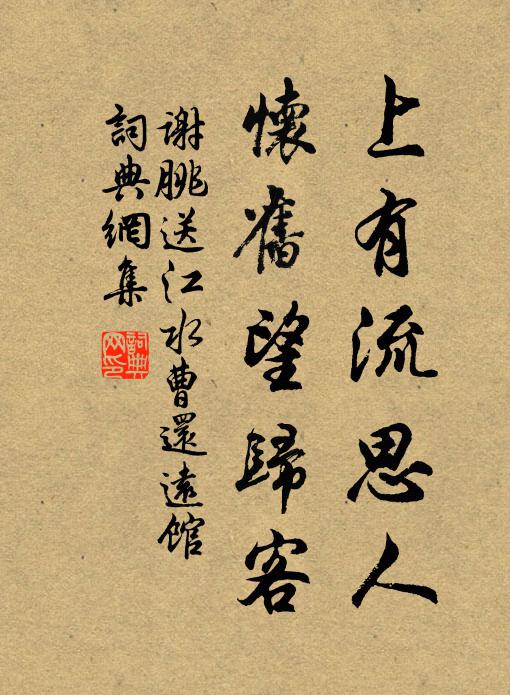 上有流思人
懷舊望歸客
謝朓送江水曹還遠館
詞典網集
詞典網印